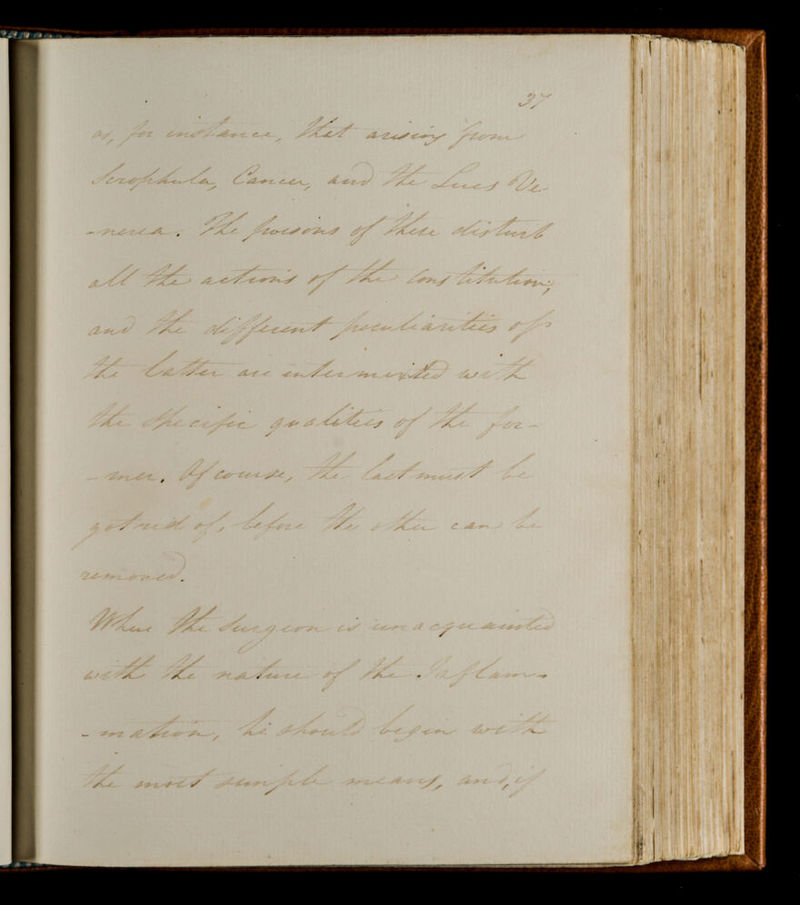 37
as, for instance, that arising from
Scrophula, Cancer, and the Lues Ve-
-nerea. The poisons of these disturb
all the actions of the Constitution,
and the different peculiarities of
the latter are intermixed with
the specific qualities of the for-
-mer. Of course, the last must be
got rid of, before the other can be
removed.
When the Surgeon is unacquainted
with the nature of the Inflam-
-mation, he should begin with
the most simple means, and, if